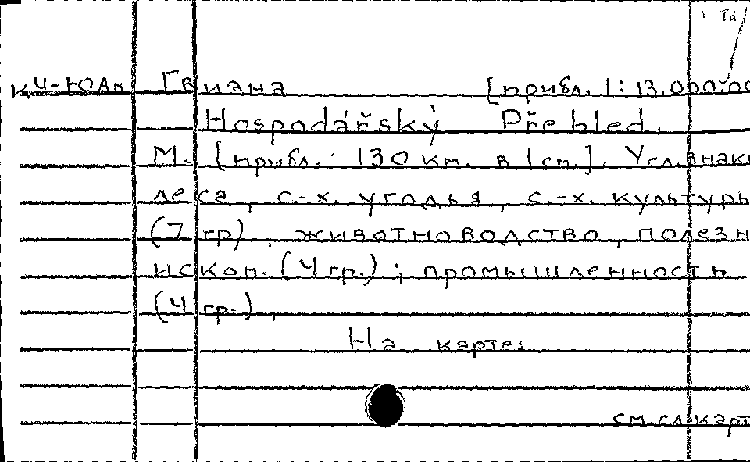 Гвиана [прибл. 1:13.000.00
Hospodářský Přehled.
М. [прибл. 130 км. в 1 см.]. Усл. знаки
леса, с.-х. угодья, с.-х. культуры
(7 гр), животноводство, полезн
ископ. (4 гр.); промышленность
(4 гр.).
На карте:
см. сл. карт